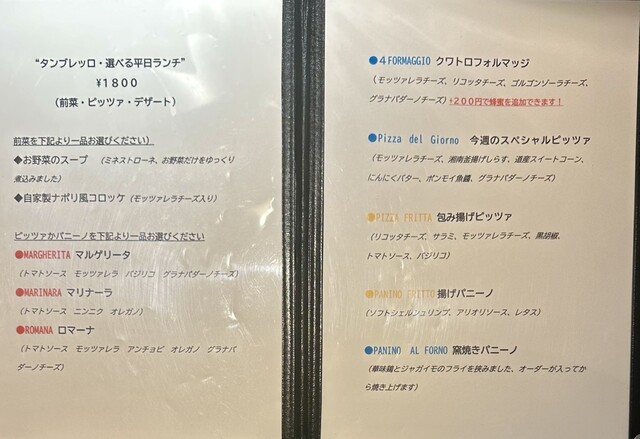 “タンブレッロ・選べる平日ランチ”
¥1800
(前菜・ピッツァ・デザート)
前菜を下記より一品お選びください)
◆お野菜のスープ (ミネストローネ、お野菜だけをゆっくり
煮込みました)
◆自家製ナポリ風コロッケ (モッツァレラチーズ入り)
ピッツァかパニーノを下記より一品お選びください
●MARGHERITA マルゲリータ
(トマトソース モッツァレラ バジリコ グラナパダーノチーズ)
●MARINARA マリナーラ
(トマトソース ニンニク オレガノ)
●ROMANA ロマーナ
(トマトソース モッツァレラ アンチョビ オレガノ グラナパ
ダーノチーズ)
●4FORMAGGIO クワトロフォルマッジ
(モッツァレラチーズ、リコッタチーズ、ゴルゴンゾーラチーズ、
グラナパダーノチーズ)+200円で蜂蜜を追加できます!
●Pizza del Giorno 今週のスペシャルピッツァ
(モッツァレラチーズ、湘南釜揚げしらす、道産スイートコーン、
にんにくバター、ポンモイ魚醤、グラナパダーノチーズ)
●PIZZA FRITTA 包み揚げピッツァ
(リコッタチーズ、サラミ、モッツァレラチーズ、黒胡椒、
トマトソース、バジリコ)
●PANINO FRITTO 揚げパニーノ
(ソフトシェルシュリンプ、アリオリソース、レタス)
●PANINO AL FORNO 窯焼きパニーノ
(華味鶏とジャガイモのフライを挟みました、オーダーが入ってか
ら焼き上げます)